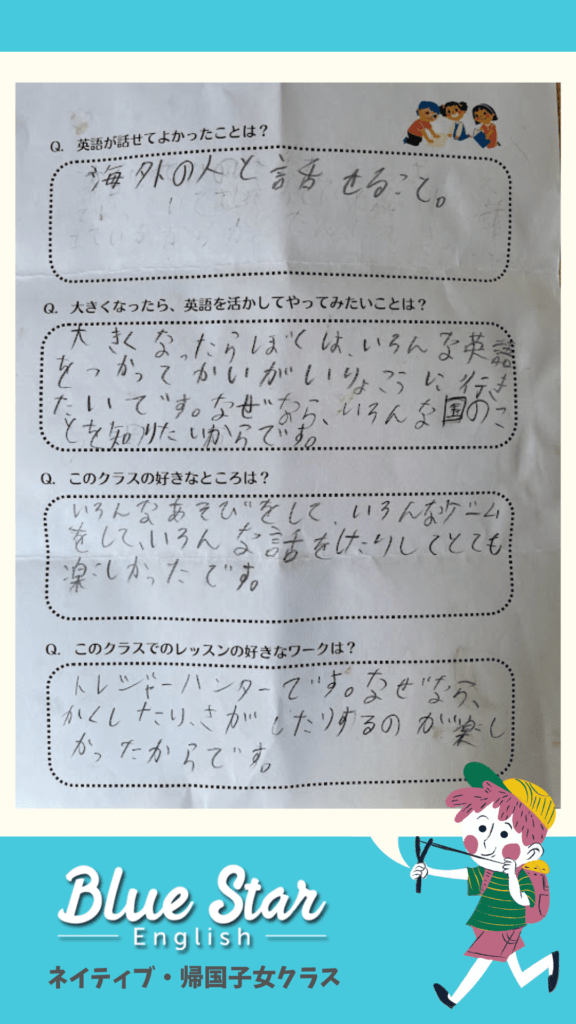 Q. 英語が話せてよかったことは？
海外の人と話せること。
Q. 大きくなったら、英語を活かしてやってみたいことは？
大きくなったらぼくは、いろんな英語
をつかってかいがいりょこうに行き
たいです。なぜなら、いろんな国のこ
とを知りたいからです。
Q. このクラスの好きなところは？
いろんなあそびをして、いろんなゲーム
をして、いろんな話をしたりしてとても
楽しかったです。
Q. このクラスでのレッスンの好きなワークは？
トレジャーハンターです。なぜなら、
かくしたり、さがしたりするのが楽し
かったからです。
Blue Star
English
ネイティブ・帰国子女クラス